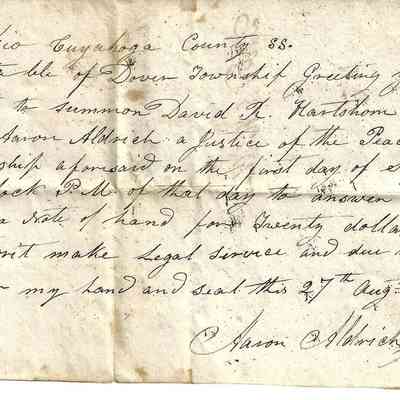 io Cuyahoga County ss.
ble of Dover Township Greeting y
to summon David R. Hartshorn
Aaron Aldrich a Justice of the Peac
ship aforesaid on the first day of
lock P.M. of that day to answer
a Note of hand for Twenty dolla
rit make Legal service and due
my hand and seal this 27th Aug
Aaron Aldrich